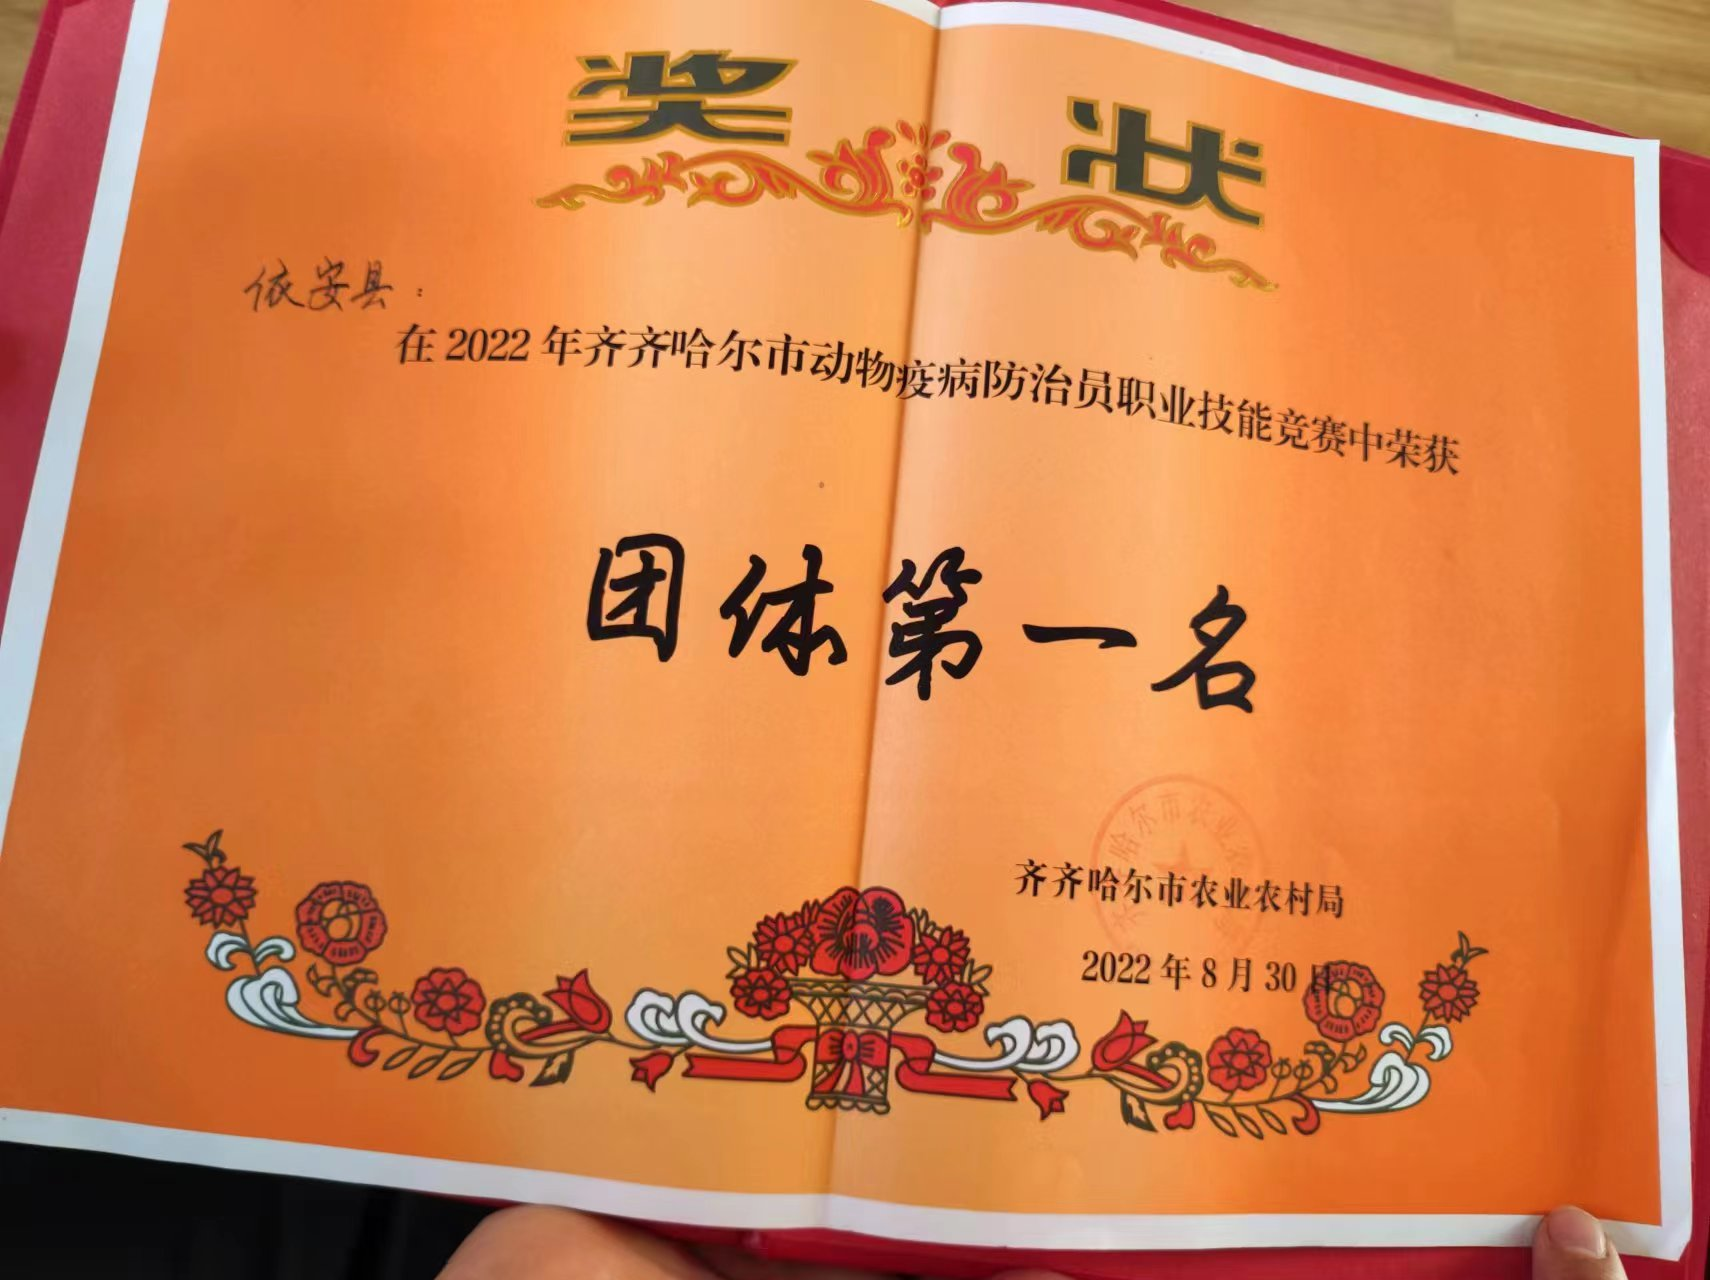 奖状
依安县：
在2022年齐齐哈尔市动物疫病防治员职业技能竞赛中荣获
团体第一名
哈尔市农业
齐齐哈尔市农业农村局
2022年8月30日